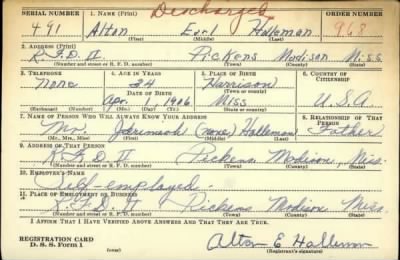 Discharged
SERIAL NUMBER 1. NAME (Print) ORDER NUMBER
491 Alton Earl Holleman 968
(First) (Middle) (Last)
2. ADDRESS (Print)
R.F.D. II Pickens Madison Miss
(Number and street or R. F. D. number) (Town) (County) (State)
3. TELEPHONE 4. AGE IN YEARS 5. PLACE OF BIRTH 6. COUNTRY OF CITIZENSHIP
None 34 Harrison
DATE OF BIRTH (Town or county)
Apr. 1906 Miss U.S.A.
(Exchange) (Number) (Mo.) (Day) (Yr.) (State or country)
7. NAME OF PERSON WHO WILL ALWAYS KNOW YOUR ADDRESS 8. RELATIONSHIP OF THAT PERSON
Mr. (none) Holleman Father
(Mr., Mrs., Miss) (First) (Middle) (Last)
9. ADDRESS OF THAT PERSON
R.F.D. II Pickens Madison, Miss.
(Number and street or R. F. D. number) (Town) (County) (State)
10. EMPLOYER'S NAME
Self-employed
11. PLACE OF EMPLOYMENT OR BUSINESS
R.F.D. II Pickens Madison Miss.
(Number and street or R. F. D. number) (Town) (County) (State)
I AFFIRM THAT I HAVE VERIFIED ABOVE ANSWERS AND THAT THEY ARE TRUE.
REGISTRATION CARD
D. S. S. Form 1 (over) Alton E Holleman
(Registrant's signature)